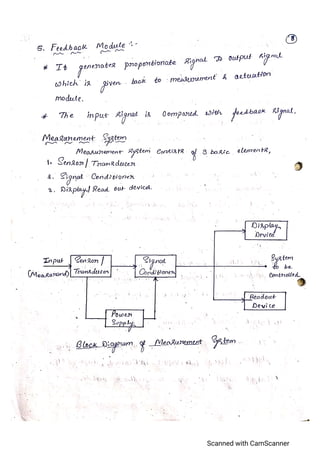 8
5. Feedback Module :-
* It generates proportionate signal to output signal
which is given back to measurement & actuation
module.
* The input signal is compared with feedback signal.
Measurement System
Measurement System consists of 3 basic elements,
1. Sensor / Transducer
2. Signal Conditioner
3. Display / Read out device.
Display
Device
Input
(Measurand)
Sensor /
Transducer
Signal
Conditioner
System
to be
Controlled
Readout
Device
Power
Supply
Block Diagram of Measurement System
Scanned with CamScanner